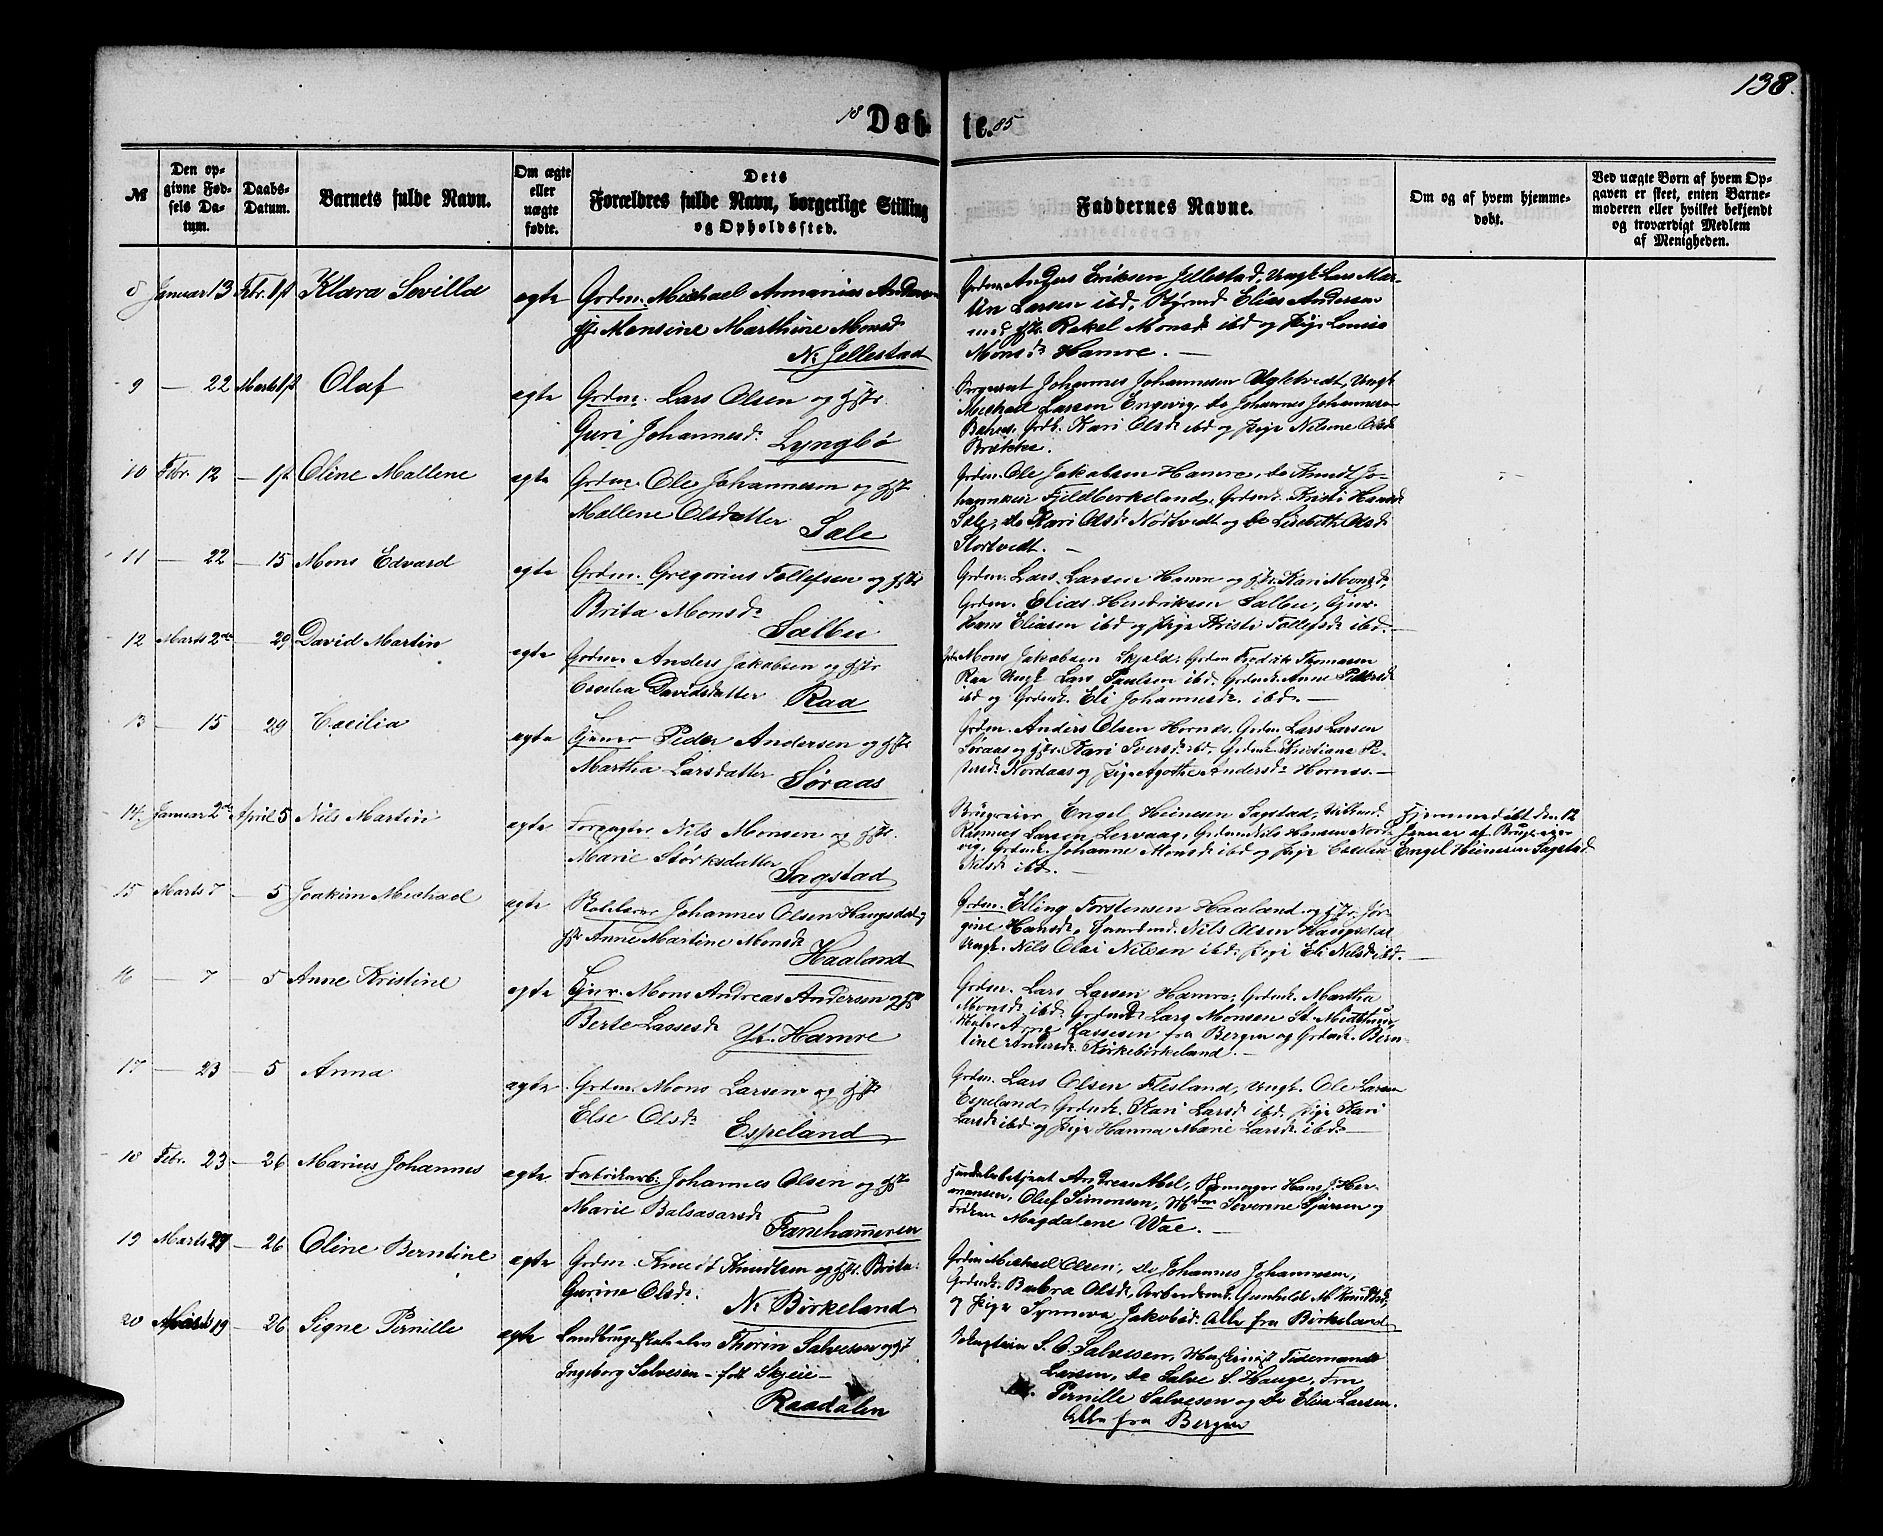 138.
18 Døb- te. 85
№
Den op-
givne Fød-
sels Da-
tum.
Daabs-
Datum.
Barnets fulde Navn.
Om ægte
eller
uægte
fødte.
Dets
Forældres fulde Navn, borgerlige Stilling
og Opholdssted.
Faddernes Navne.
Om og af hvem hjemme-
døbt.
Ved uægte Børn af hvem Op-
gaven er skeet, enten Barne-
moderen eller hvilket bekjendt
og troværdigt Medlem
af Menigheden.
8 Januar 13 Febr. 1st Klara Sevilla ægte Grdm. Michael Annanias Andersen
Hstr. Mensine Marthine Monsd.
N. Jellestad
Grdm. Anders Eriksen Jellestad, Ungk. Lars Mar-
tin Larsen ibd, Elias Andersen
med Hstr. Rakel Monsdr ibd og Pige Lovise
Monsdr Hamre. —
9 — 22 Marts 1st Olaf ægte Grdm. Lars Olsen og Hstr.
Guri Johannesd. Lyngbø
Sergeant Johannes Johannesen Ugletvedt, Ungk.
Michael Larsen Engevig, do Johannes Johannesen
Grdk. Kari Olsdr ibd og Pige Nilsine Olsdr
Brække.
10 Febr. 12 — 1st Oline Mallene ægte Grdm. Ole Johannesen og Hstr.
Mallene Olsdatter Sæle
Grdm. Ole Jakobsen Hamre, do Knudt Jo-
hannesen Fjeldbirkeland, Grdmk. Kristi Hansd
Sæle, do Kari Olsdr Nødtvedt og do Lisbeth Olsdr
Stortvedt. —
11 — 22 — 15 Mons Edvard ægte Grdm. Gregorius Tollefsen og Hstr
Brita Monsdr Sælbu
Grdm. Lars Larsen Hamre og Hstr. Kari Monsd,
Grdm. Elias Hendriksen Sælbu, Gjuv.
Hans Eliasen ibd og Pige Kristi Tollefsdr ibd. —
12 Marts 2den — 29 David Martin ægte Grdm. Anders Jakobsen og Hstr
Cecilia Davidsdatter Raa
Grdm Mons Jakobsen Skjold, Grdm Fredrik Thomassen
Raa Ungk Lars Paulsen ibd. Grdmk. Anne Pedersd
ibd og Grdmk. Eli Johannesdr. ibd. —
13 — 15 — 29 Cecilia ægte Gjuver Peder Andersen og Hstr
Martha Larsdatter Søraas
Grdm. Anders Olsen Hornæs. Grdm Lars Larsen
Søraas og Hstr. Kari Iversd. ibd, Grdmk. Kristiane Pe-
dersdr Nordaas og Pige Agothe Andersdr Hornæs. —
14. Januar 2den April 5 Nils Martin ægte Forpagter Nils Monsen og Hstr.
Marie Størksdatter Sagstad
Brugseier Engel Heinesen Sagstad,
Rasmus Larsen Lervaag, Grdm. Nils Hansen Nord-
vig, Grdmk. Johanne Monsdr ibd og Pige Cecilia
Nilsdr ibd. —
Hjemmedøbt den 12
Januar af Brugseier
Engel Heinesen Sagstad
15 Marts 7 — 5 Joakim Michael ægte Johannes Olsen Haugsdal og
Hstr Anne Martine Monsdr
Haaland
Grdm. Elling Torstensen Haaland og Hstr. Jør-
gine Hansdr, Nils Olsen Haugsdal
Ungk. Nils Olai Nilsen ibd. Pige Eli Nilsdr ibd. —
16 — 7 — 5 Anne Kristine ægte Gjuv. Mons Andreas Andersen og Hstr
Berte Lassesd. Yt. Hamre
Grdm. Lars Larsen Hamre, Grdmk. Martha
Monsdr ibd. Grdmd. Lars Monsen St. Midthun,
Arne Lassesen fra Bergen og Grdmk. Bern-
tine Andersdr Kirkebirkeland. —
17 — 23 — 5 Anna ægte Grdm. Mons Larsen og Hstr
Else Olsdr Espeland
Grdm. Lars Olsen Flesland, Ungk. Ole Larsen
Espeland, Grdmk. Kari Larsd ibd. Pige Kari
Larsd ibd og Pige Hanna Marie Larsdr. ibd. —
18 Febr. 23 — 26 Marius Johannes ægte Fabrikarb. Johannes Olsen og Hstr
Marie Balsasarsd. Fanehammeren
Handelsbetjent Andreas Abel, Hans J. Her-
mansen, Oluf Simonsen, Madm Severine og
Frøken Magdalene Wae. —
19 Marts 29 — 26 Oline Berntine ægte Grdm. Knudt Knudtsen og Hstr. Brita
Gurine Olsdr. N. Birkeland
Grdm Michael Olsen, do Johannes Johannesen,
Grdmk. Barbra Olsdr, Gunhild M. Knudtsd,
og Pige Synneva Jakobsd. Alle fra Birkeland
20 Marts 19 — 26 Signe Pernille ægte Landbrugskandidat Thorin Salvesen og Hst
Ingeborg Salvesen — født Skjeie —
Raadalen
S. O. Salvesen, Tidemand
Larsen, do Salve S. Hauge, Fru
Pernille Salvesen og do Elisa Larsen.
Alle fra Bergen